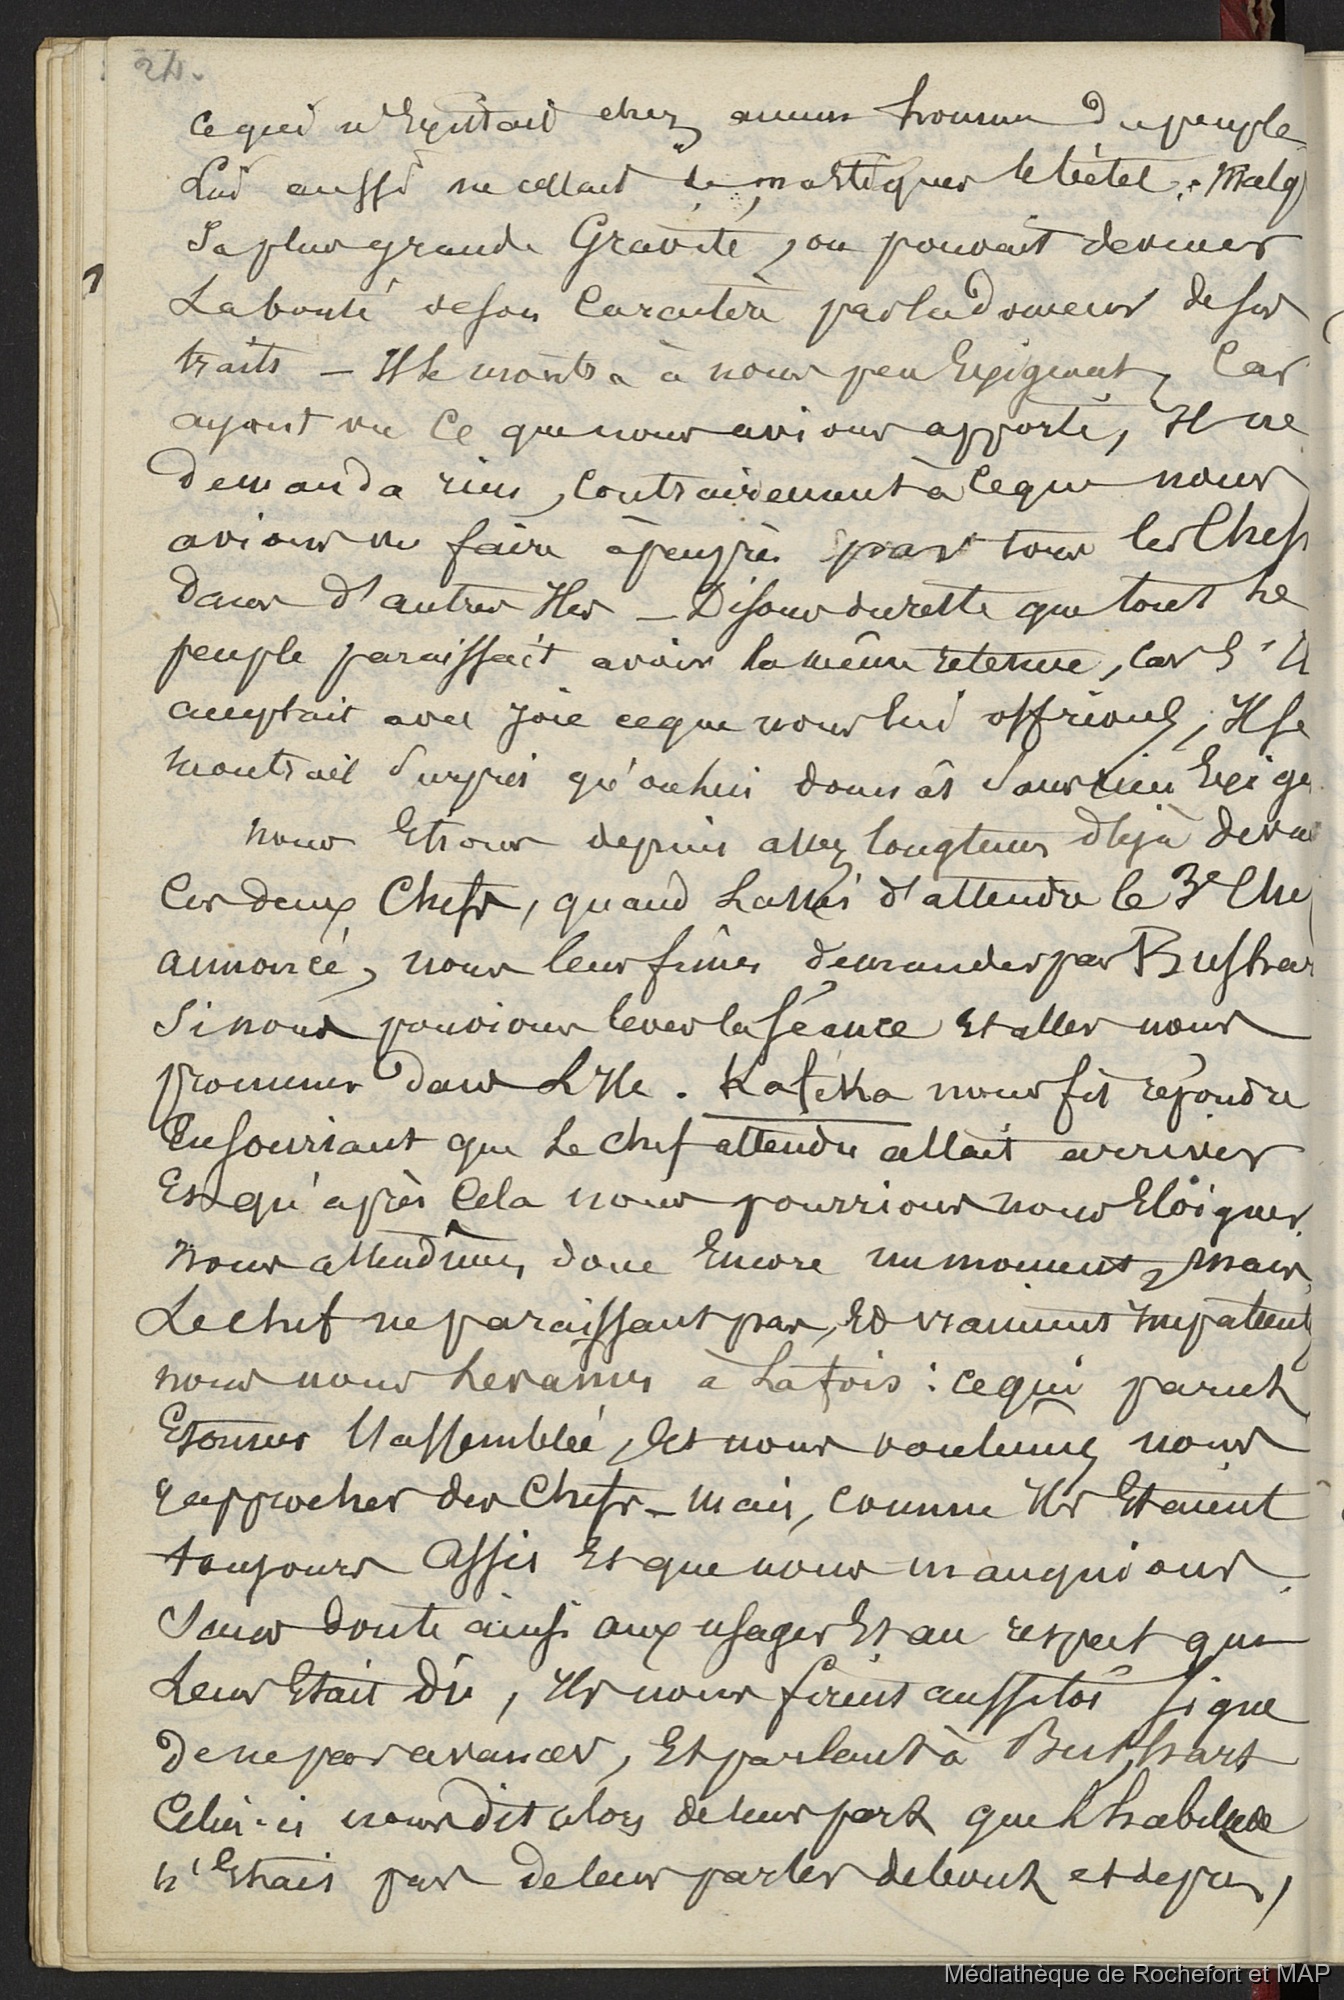 24.
ce qui n'Existait chez aucun homme du peuple
Lui aussi ne cessait de mastiquer le bétel. Malg
Sa plus grande Gravité, on pouvait deviner
La bonté de son Caractère par la Douceur de ses
traits _ Il Se montra à nous peu Exigeant, Car
ayant vu Ce que nous avions apporté, Il ne
Demanda rien, Contrairement à Ceque nous
avions vu faire àpeuprès par tous les Chefs
Dans d'autres Iles _ Disons dureste que tout Le
peuple paraissait avoir la même retenue, Car S'Il
acceptait avec joie ceque nous lui offrions, Il Se
montrait Surpris qu'on lui donnât Sans rien Exige
Nous Etions depuis assez longtems déjà deva
Ces deux Chefs, quand Lassés d'attendre le 3e Che
annoncé, nous leur fîmes demander par Bushar
Si nous pouvions lever la Séance Et aller nous
promener Dans L'Ile. Kaféka nous fit répondre
En Souriant que Le chef attendu allait arriver
Et qu'après Cela nous pourrions nous Eloigner.
Nous attendîmes donc Encore un moment, Mais,
Le chef ne paraissant pas, Et vraiment Impatient
nous nous Levames à La fois : cequi parut
Etonner l'assemblée, Et nous voulumes nous
rapprocher des Chefs _ Mais, comme Ils Etaient
toujours Assis Et que nous manquions
Sans doute ainsi aux usages Et au respect qui
Leur Etait Dû, Ils nous firent aussitôt Signe
De ne pas avancer, Et parlant à Bushart
Celui-ci nous dit alors de leur part que L'habitude
n'Etait pas de leur parler debout et de près,
Médiathèque de Rochefort et MAP